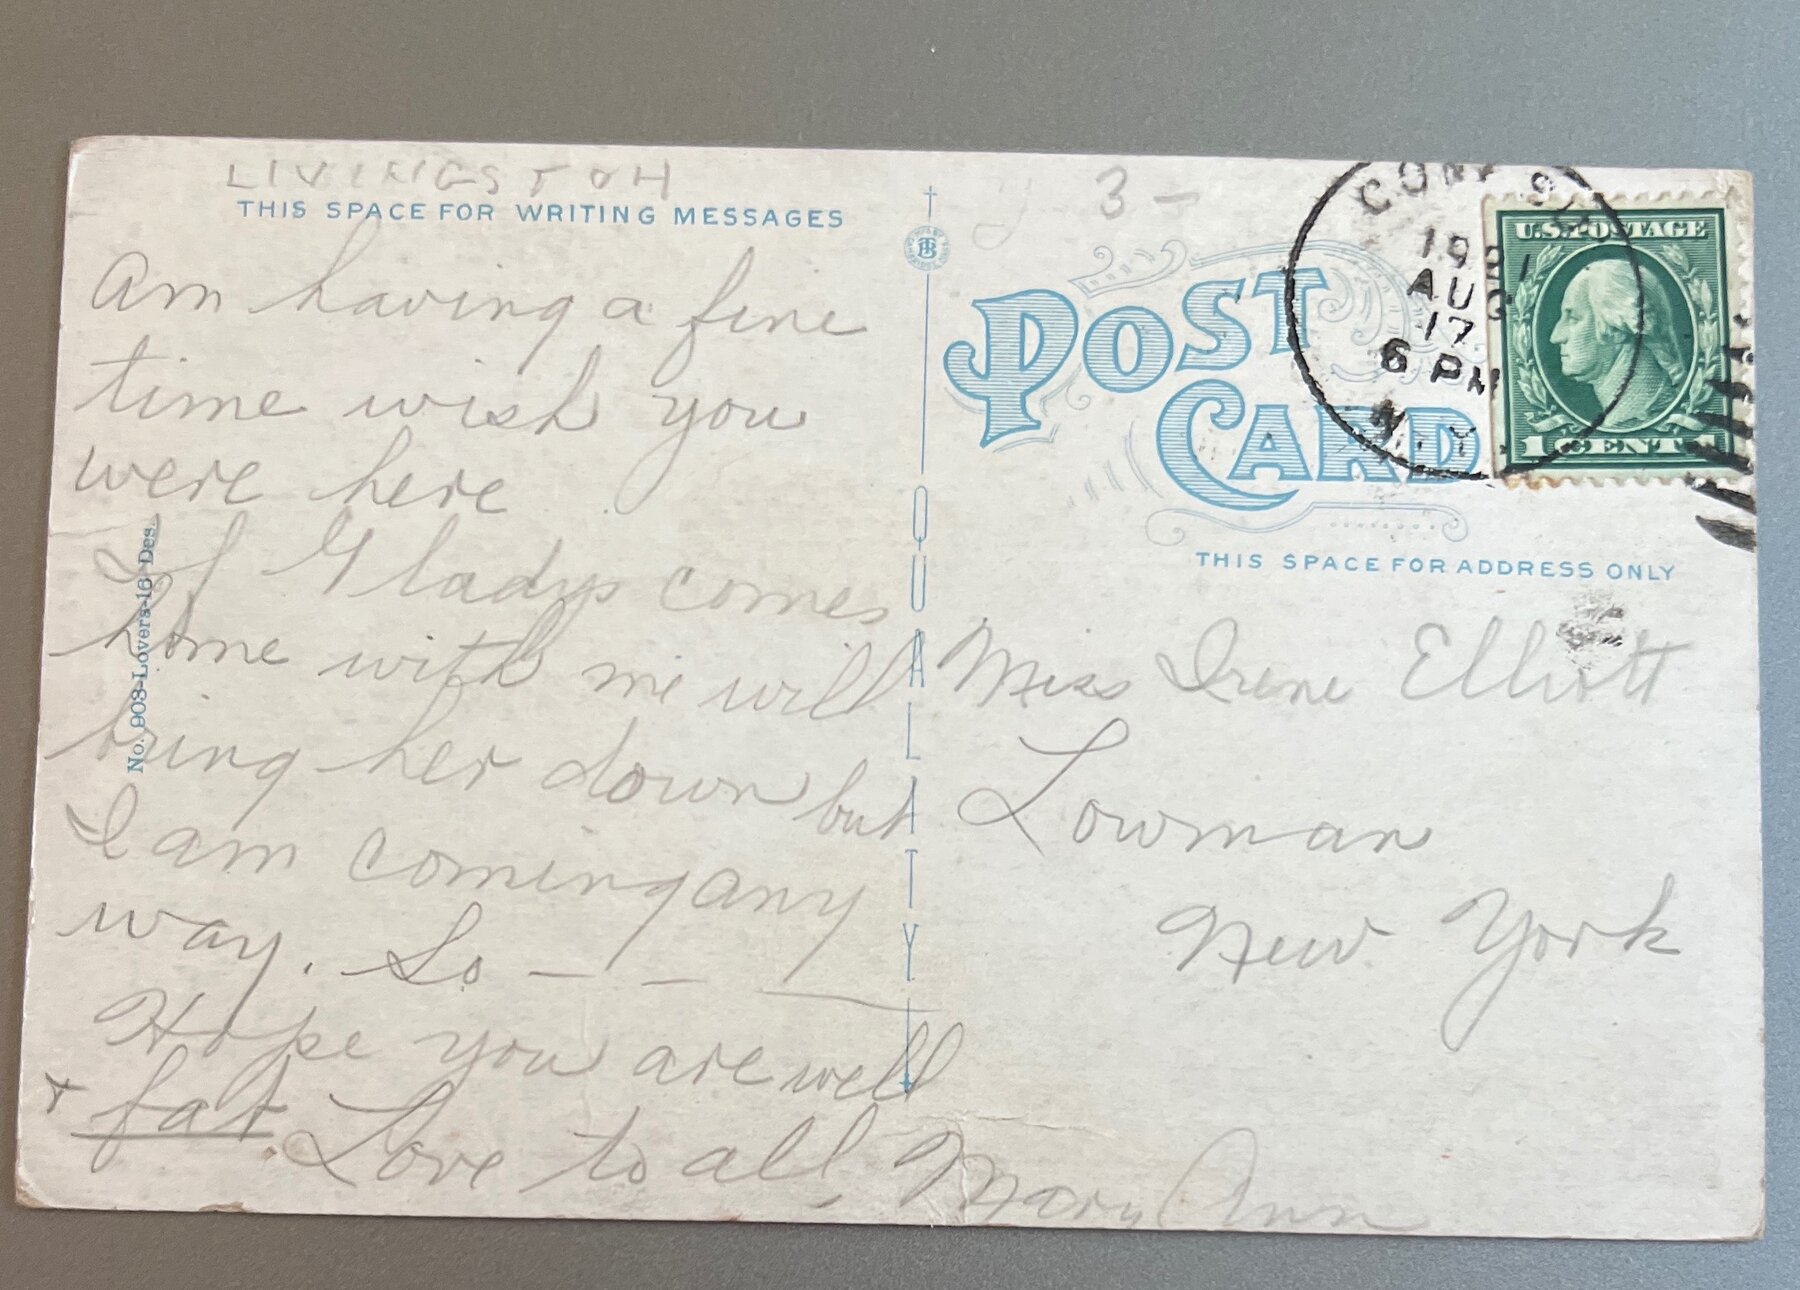 LIVINGSTON
THIS SPACE FOR WRITING MESSAGES
Am having a fine
time wish you
were here
If Gladys comes
home with me will
bring her down but
I am coming any
way. So — — —
Hope you are well
+ fat. Love to all, Mary Ann
No. 903-Lovers-16 Des.
QUALITY
3 -
POST
CARD
1921
AUG
17
6 PM
N.Y.
U.S. POSTAGE
1 CENT 1
THIS SPACE FOR ADDRESS ONLY
Miss Irene Elliott
Lowman
New York